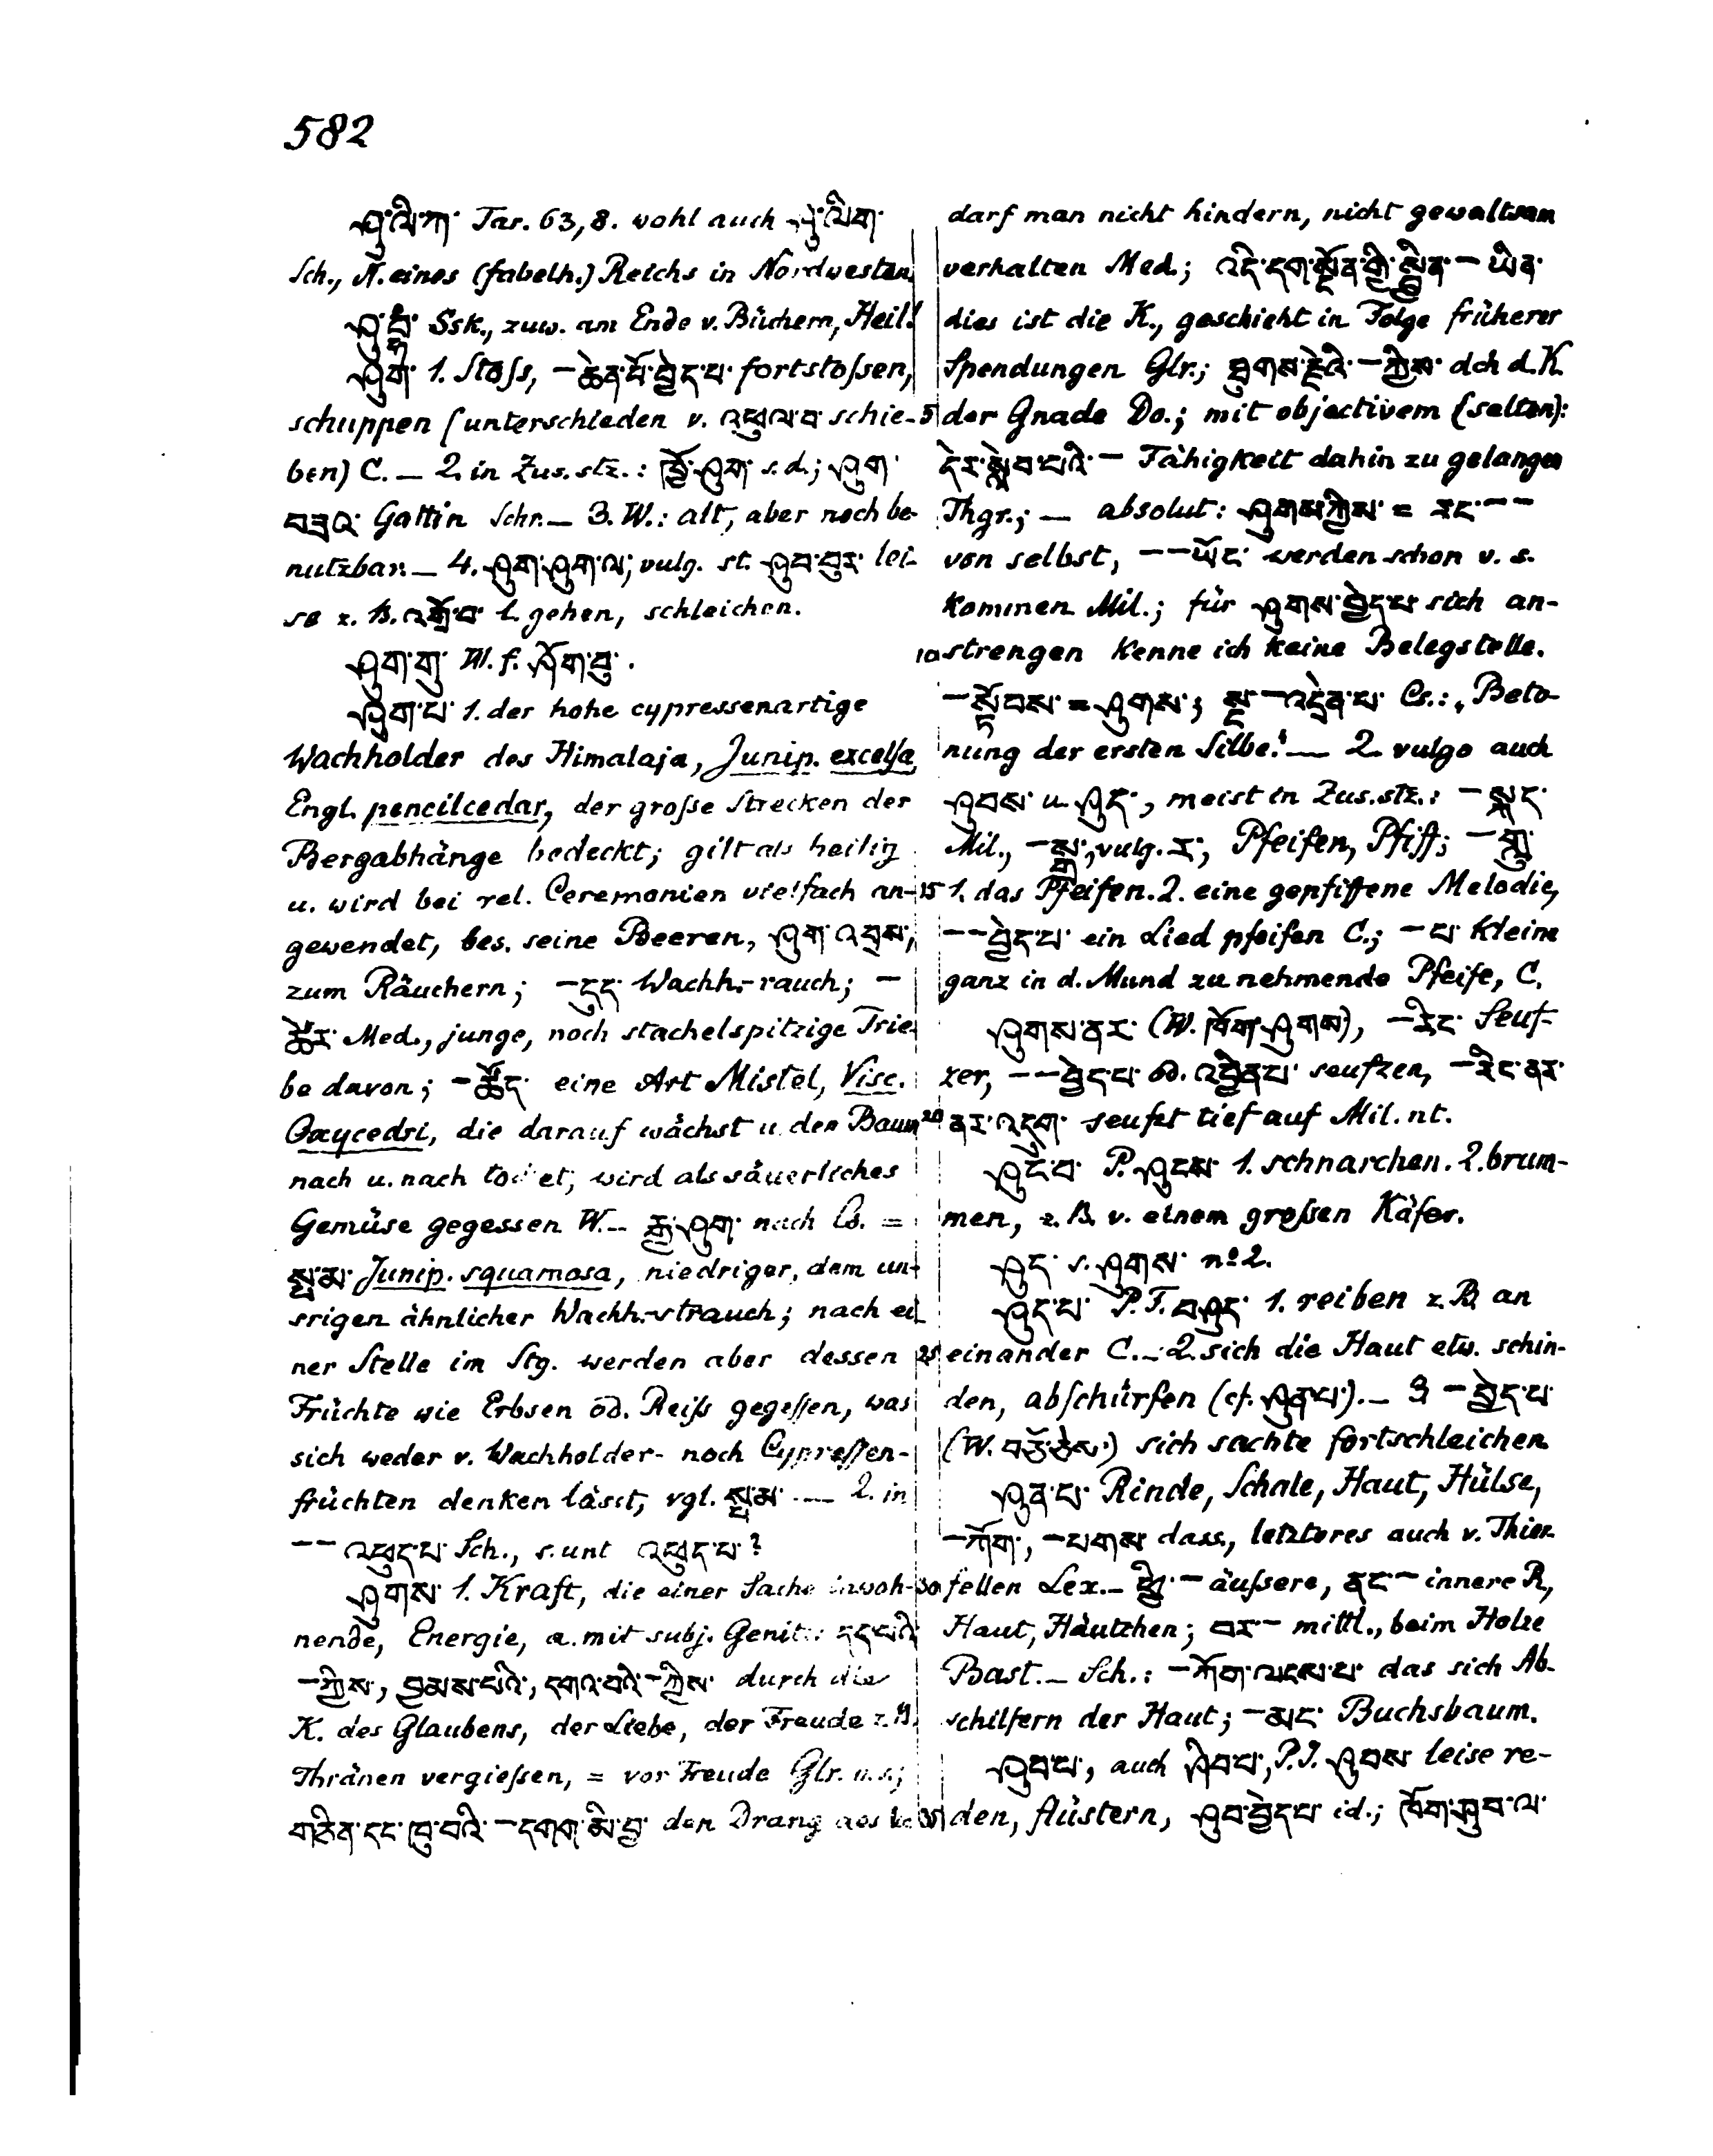 582
ཤུ་ལི་ཀ་ Tar. 63, 8. wohl auch ཤུ་ལིག་
Sch., N. eines (fabelh.) Reichs in Nordwesten
Ssk., zuw. am Ende v. Büchern, Heil!
ཤུག་ 1. Stoss, – ཆེན་པོ་བྱེད་པ་ fortstossen,
schuppen (unterschieden v. འཕུལ་བ་ schie-
ben) C. — 2. in Zus.stz.: ཁྱོ་ཤུག་ s.d.; ཤུག་
བཟའ་ Gattin Schr. — 3. W.: alt, aber noch be-
nutzbar. — 4. ཤུག་ཤུག་ལ་; vulg. st. ཤུབ་བུར་ lei-
se z. B. འགྲོ་བ་ l. gehen, schleichen.
ཤུག་གུ་ W. f. ཤོག་བུ་.
ཤུག་པ་ 1. der hohe cypressenartige
Wachholder des Himalaja, Junip. excelsa,
Engl. pencilcedar, der grosse Strecken der
Bergabhänge bedeckt; gilt als heilig
u. wird bei rel. Ceremonien vielfach an-
gewendet, bes. seine Beeren, ཤུག་འབྲས་,
zum Räuchern; –དུད་ Wachh.-rauch; –
ཚེར་ Med., junge, noch stachelspitzige Trie-
be davon; –ཚོད་ eine Art Mistel, Visc.
Oxycedri, die darauf wächst u. den Baum
nach u. nach tödtet, wird als säuerliches
Gemüse gegessen W. — རྒྱ་ཤུག་ nach Cs. =
སྤ་མ་ Junip. squamosa, niedriger, dem un-
srigen ähnlicher Wachh.-strauch; nach ei-
ner Stelle im Stg. werden aber dessen
Früchte wie Erbsen od. Reiss gegessen, was
sich weder v. Wachholder- noch Cypressen-
früchten denken lässt, vgl. སྤ་མ་ — 2. in
–– འཕུད་པ་ Sch., s. unt འཕུད་པ་?
ཤུགས་ 1. Kraft, die einer Sache inwoh-
nende, Energie, a. mit subj. Genit.: དད་པའི་
–ཀྱིས་, བྱམས་པའི་, དགའ་བའི་–ཀྱིས་ durch die
K. des Glaubens, der Liebe, der Freude z. B.
Thränen vergiessen, = vor Freude Glr. u. s.;
གཅིན་དང་ཁུ་བའི་–དགག་མི་བྱ་ den Drang des
darf man nicht hindern, nicht gewaltsam
verhalten Med.; འདི་དག་སྔོན་གྱི་སྦྱིན་–ཡིན་
dies ist die K., geschieht in Folge früherer
Spendungen Glr.; ཐུགས་རྗེའི་–ཀྱིས་ dch d. K.
5 der Gnade Do.; mit objectivem (selten):
དེར་སླེབ་པའི་– Fähigkeit dahin zu gelangen
Thgr.; — absolut: ཤུགས་ཀྱིས་ = རང་––
von selbst, ––ཡོང་ werden schon v. s.
kommen Mil.; für ཤུགས་བྱེད་པ་ sich an-
10 strengen kenne ich keine Belegstelle.
–སྟོབས་ = ཤུགས་; སྔ་–འདྲེན་པ་ Cs.: „Beto-
nung der ersten Silbe.“ — 2. vulgo auch
ཤུབས་ u. ཤུད་, meist in Zus.stz.: –སྐད་
Mil., –སྒྲ་, vulg. ར་, Pfeifen, Pfiff; –གླུ་
15 1. das Pfeifen. 2. eine gepfiffene Melodie,
––བྱེད་པ་ ein Lied pfeifen C.; –པ་ kleine
ganz in d. Mund zu nehmende Pfeife, C.
ཤུགས་ནར་ (W. ཁོག་ཤུགས་), –རིང་ Seuf-
zer, ––བྱེད་པ་ od. འབྱིན་པ་ seufzen, –རིང་ནར་
20 ནར་འདུག་ seufzt tief auf Mil. nt.
ཤུང་བ་ P. ཤུངས་ 1. schnarchen. 2. brum-
men, z. B. v. einem grossen Käfer.
ཤུད་ s. ཤུགས་ no 2.
ཤུད་པ་ P. F. བཤུད་ 1. reiben z. B. an
25 einander C. — 2. sich die Haut etw. schin-
den, abschürfen (cf. ཤུན་པ་). — 3 –བྱེད་པ་
(W. བཅོ་ཅེས་) sich sachte fortschleichen
ཤུན་པ་ Rinde, Schale, Haut, Hülse,
–ཀོག་, –པགས་ dass., letzteres auch v. Thier-
30 fellen Lex. — ཕྱི་– äussere, ནང་– innere R.,
Haut, Häutchen; བར་– mittl., beim Holze
Bast. — Sch.: –ཀོག་ལངས་པ་ das sich Ab-
schilfern der Haut; –མང་ Buchsbaum.
ཤུབ་པ་, auch ཤིབ་པ་, P. I. ཤུབས་ leise re-
35 den, flüstern, ཤུབ་བྱེད་པ་ id.; ཁོག་ཤུབ་ལ་